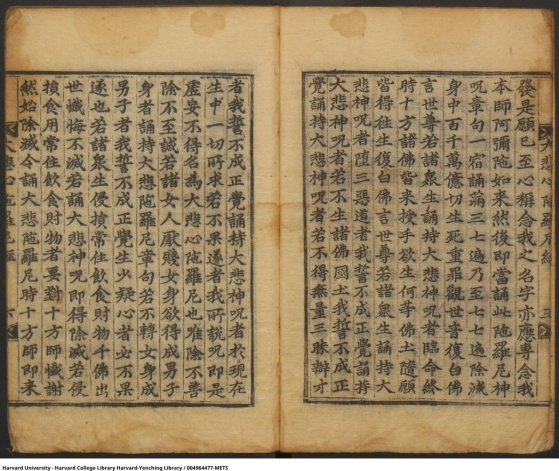 發是願已至心稱念我之名字亦應專念我
本師阿彌陁如來然後即當誦此陁羅尼神
呪章句一宿誦滿三七遍乃至七七遍除滅
身中百千萬億切生死重罪觀世音復白佛
言世尊若諸衆生誦持大悲神呪者臨命終
時十方諸佛皆來授手欲生何等佛土隨願
皆得徃生復白佛言世尊若諸衆生誦持大
悲神呪者墮三惡道者我誓不成正覺誦持
大悲神呪者若不生諸佛國土我誓不成正
覺誦持大悲神呪者若不得無量三昧辯才
大悲心陁羅尼經
三
者我誓不成正覺誦持大悲神呪者於現在
生中一切所求若不果遂者我所說呪即是
虛妄不得名為大悲心陁羅尼也唯除不善
除不至誠若諸女人厭賤女身欲得成男子
身者誦持大悲陁羅尼章句若不轉女身成
男子者我誓不成正覺生少疑心者必不果
遂也若諸衆生侵損常住飲食財物千佛出
世懺悔不滅若誦大悲神呪即得除滅若侵
損食用常住飲食財物者要對十方師懺謝
然始除滅今誦大悲陁羅尼時十方師即来
大悲心陁羅尼經
六
Harvard University - Harvard College Library Harvard-Yenching Library / 004964477-METS